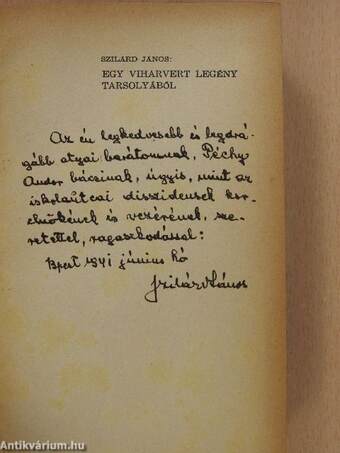 SZILÁRD JÁNOS:
EGY VIHARVERT LEGÉNY
TARSOLYÁBÓL
Az én legkedvesebb és legdrá-
gább atyai barátomnak, Péchy
Andor bácsinak, úgyis, mint az
iskolautcai disszidensek kor-
elnökének és vezérének, sze-
retettel, ragaszkodással:
Bpest 1941 június hó
Szilárd János
Antikvárium.hu